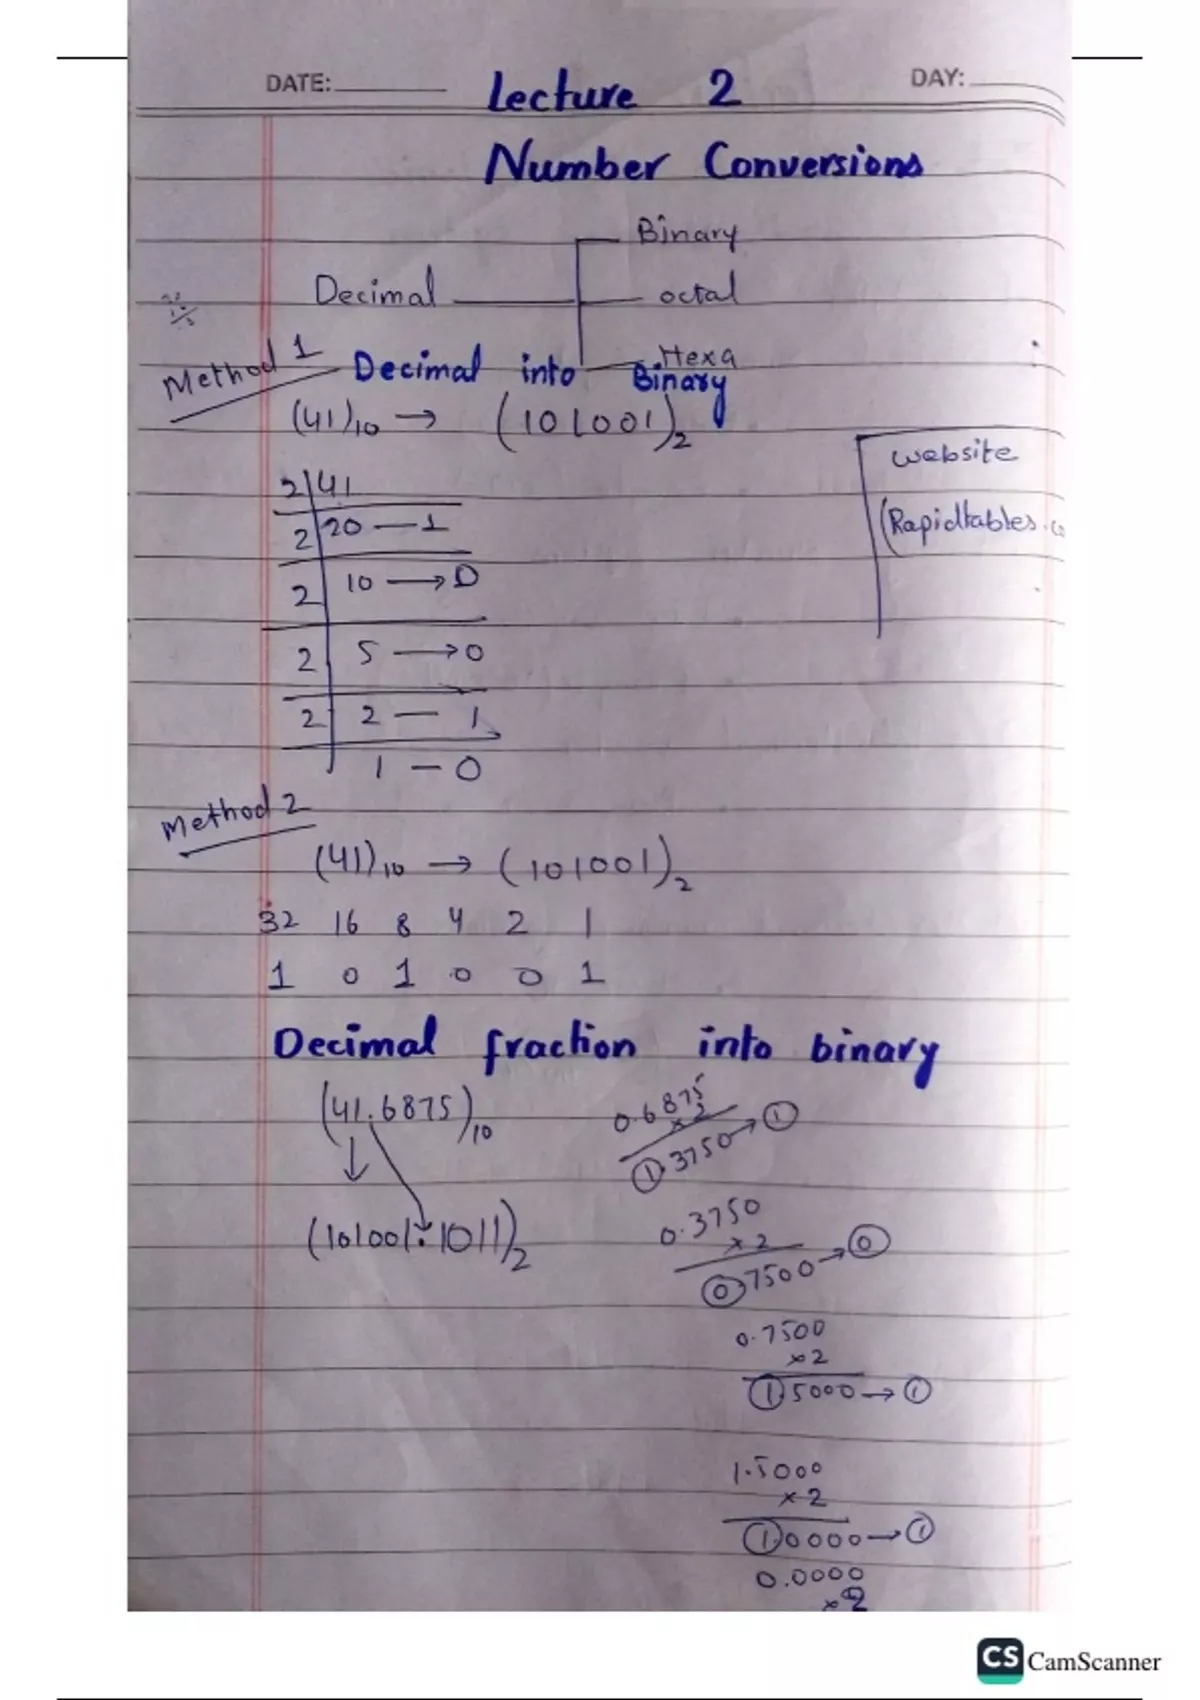 DATE: Lecture 2 DAY:
Number Conversions
Binary
Decimal octal
Hexa
Method 1 Decimal into Binary
(41)10 → (101001)2
website
(Rapidtables.co
2 41
2 20 — 1
2 10 → 0
2 5 → 0
2 2 — 1
1 — 0
Method 2
(41)10 → (101001)2
32 16 8 4 2 1
1 0 1 0 0 1
Decimal fraction into binary
(41.6875)10
(101001.1011)2
0.6875
×2
1.3750 → 1
0.3750
×2
0.7500 → 0
0.7500
×2
1.5000 → 1
1.5000
×2
1.0000 → 1
0.0000
×2
CS CamScanner